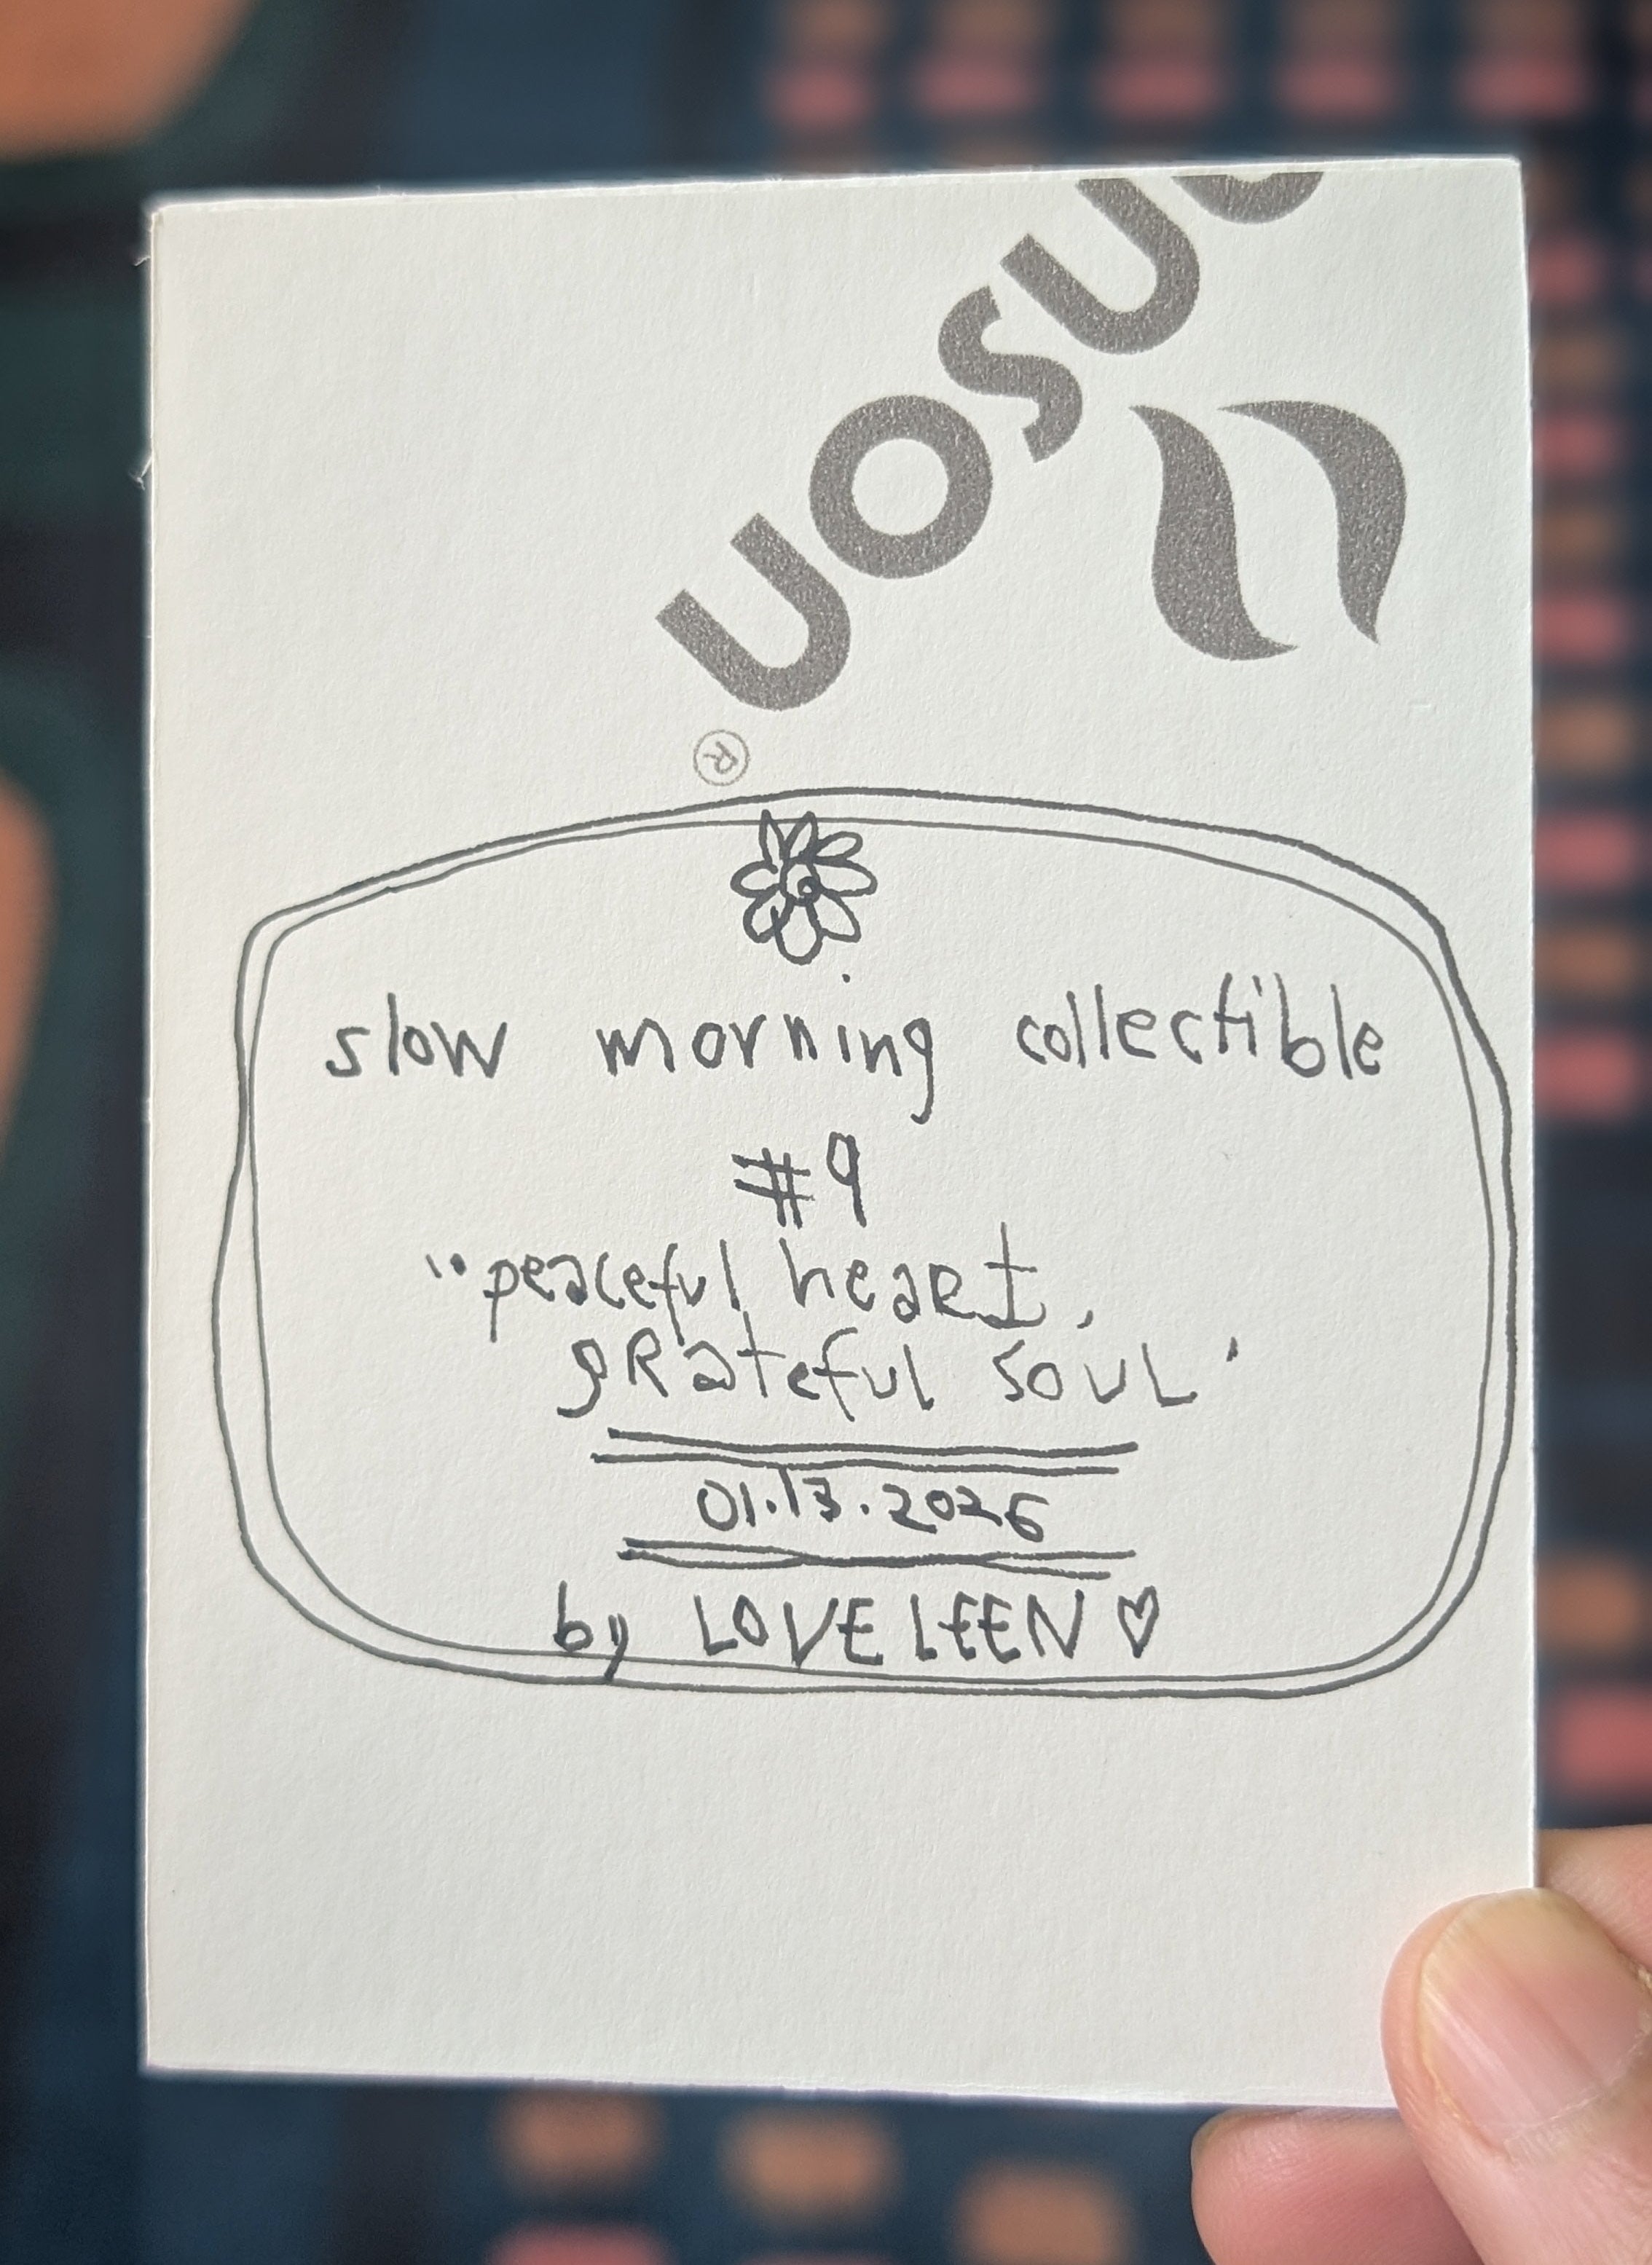 slow morning collectible
#9
"peaceful heart,
grateful soul"
01.13.2026
by LOVELEEN ♡